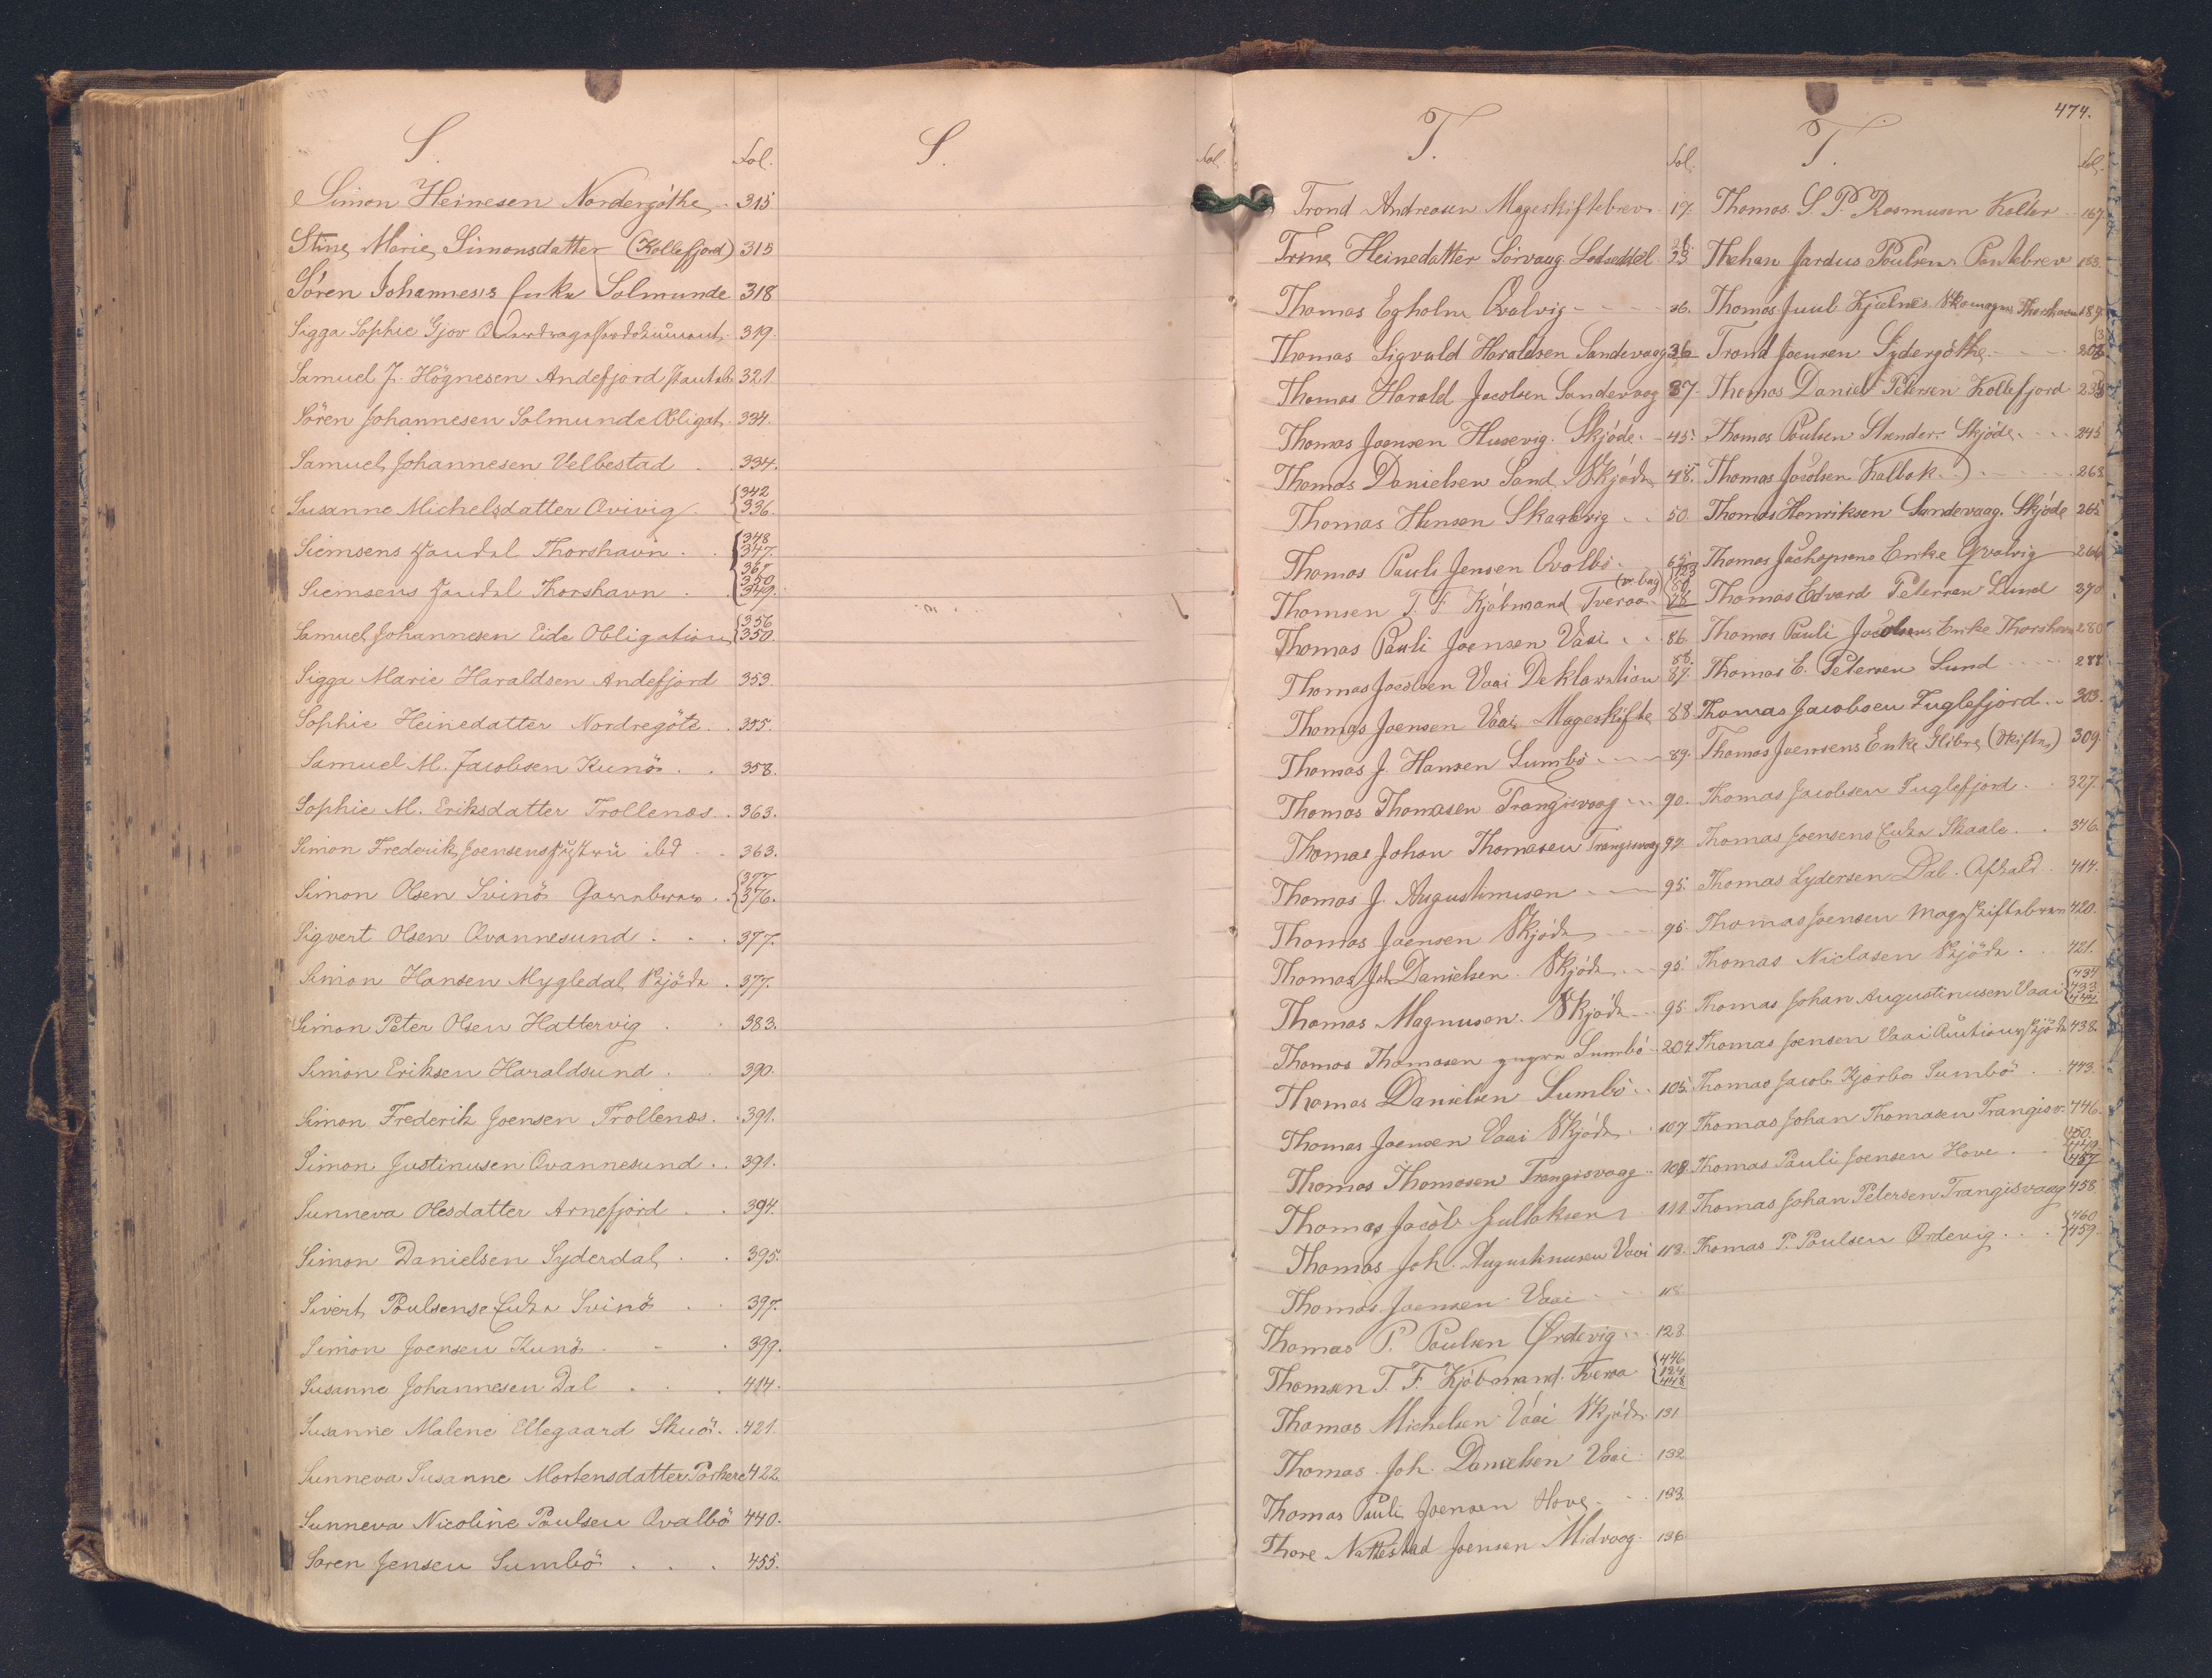 S.
Fol.
Simon Heinesen Nordergöthe 315
Stine Marie Simonsdatter (Kollefjord) 315
Sören Johannesens Enke Solmunde 318
Sigga Sophie Gjov 319.
Samuel J. Högnesen Andefjord Panteb. 321
Sören Johannesen Solmunde Obligat. 334.
Samuel Johannesen Velbestad . . 334.
Susanne Michelsdatter Qvivig {342 336.
Siemsens Handel Thorshavn . . {348 347.
Siemsens Handel Thorshavn . . {367 350 349.
Samuel Johannesen Eide Obligation {356 350.
Sigga Marie Haraldsen Andefjord 353.
Sophie Heinedatter Nordregöte. . 355.
Samuel M. Jacobsen Kunö . . 358.
Sophie M. Eriksdatter Trollenæs. . 363.
Simon Frederik Joensens Hustru ibd . . 363.
Simon Olsen Svinö Gavebrev . . {377 376.
Sigvert Olsen Qvannesund . . . 377.
Simon Hansen Mygledal Skjöde . 377.
Simon Peter Olsen Hattervig . . 383.
Simon Eriksen Haraldsund . . 390.
Simon Frederik Joensen Trollenæs. . 391.
Simon Justinusen Qvannesund . . 391.
Sunneva Olesdatter Arnefjord . . 394.
Simon Danielsen Syderdal . . 395.
Sivert Poulsens Enke Svinö . . 397.
Simon Joensen Kunö . . . 399.
Susanne Johannesen Dal . . . 414.
Susanne Malene Ellegaard Skuö. . 421.
Sunneva Susanne Mortensdatter Porkere 422.
Sunneva Nicoline Poulsen Qvalbö 440.
Søren Jensen Sumbö . . . 455.
S.
Fol.
T.
Fol.
Trond Andreasen Mageskiftebrev 17.
Trine Heinedatter Sörvaag Lodseddel 33
Thomas Egholm Qvalvig 36.
Thomas Sigvald Haraldsen Sandevaag 36
Thomas Harald Jacobsen Sandevaag 37.
Thomas Joensen Husevig. Skjöde. 45.
Thomas Danielsen Sand Skjöde 48.
Thomas Hansen Skaalevig . . 50
Thomas Pauli Jensen Qvalbö. 65
Thomsen T. F. Kjöbmand Tveraa (v. bag) {123 80 78
Thomas Pauli Joensen Vaai . . 86.
Thomas Jacobsen Vaai Deklaration 88. 87.
Thomas Joensen Vaai Mageskifte 88
Thomas J. Hansen Sumbö 89.
Thomas Thomasen Trangisvaag 90.
Thomas Johan Thomasen Trangisvaag 92
Thomas J. Augustinusen 95.
Thomas Joensen Skjöde 95.
Thomas Joh Danielsen. Skjöde 95.
Thomas Magnusen. Skjöde 95
Thomas Thomasen Sumbö 204
Thomas Danielsen Sumbö 105.
Thomas Joensen Vaai Skjöde 107
Thomas Thomasen Trangisvaag 108
Thomas Jacob Gullaksen 111
Thomas Joh. Augustinusen Vaai 113.
Thomas Joensen Vaai 118.
Thomas P. Poulsen Ørdevig 128
Thomsen T. F. Kjöbmand. Tveraa {446 124 448
Thomas Michelsen Vaai Skjöde 131
Thomas Joh. Danielsen Vaai 132
Thomas Pauli Joensen Hove 133.
Thore Nattestad Joensen Midvaag 136
474.
T.
Fol.
Thomas S. P. Rasmusen Kolter 167
Poulsen Pantebrev 183.
Thomas Juul Kjælnes Skomager Thorshavn 189
Trond Joensen Sydergöthe 203
Thomas Daniel Petersen Kollefjord 235
Thomas Poulsen Strender. Skjöde. 245
Thomas Jacobsen Kalbak. 263
Thomas Henriksen Sandevaag. Skjöde 265
Thomas Jachopsens Enke Qvalvig 266
Thomas Edvard Petersen Lund 270
Thomas Pauli Jacobsens Enke Thorshavn 280
Thomas E. Petersen Lund 288
Thomas Jacobsen Fuglefjord 303.
Thomas Joensens Enke Hibre (Skifte) 309
Thomas Jacobsen Fuglefjord . . 327.
Thomas Joensens Enke Skaale. . 346.
Thomas Lydersen Dal. Afkald . 414.
Thomas Joensen Mageskiftebrev 420.
Thomas Niclasen Skjöde . . 421.
Thomas Johan Augustinusen Vaai {434 433 444
Thomas Joensen Vaai Auktionsskjöde 438.
Thomas Jacob Kjærbo Sumbö . . 443.
Thomas Johan Thomasen Trangisv. 446.
Thomas Pauli Joensen Hove . . {450. 449 457
Thomas Johan Petersen Trangisvaag 458.
Thomas P. Poulsen Ørdevig . . . {460 459.